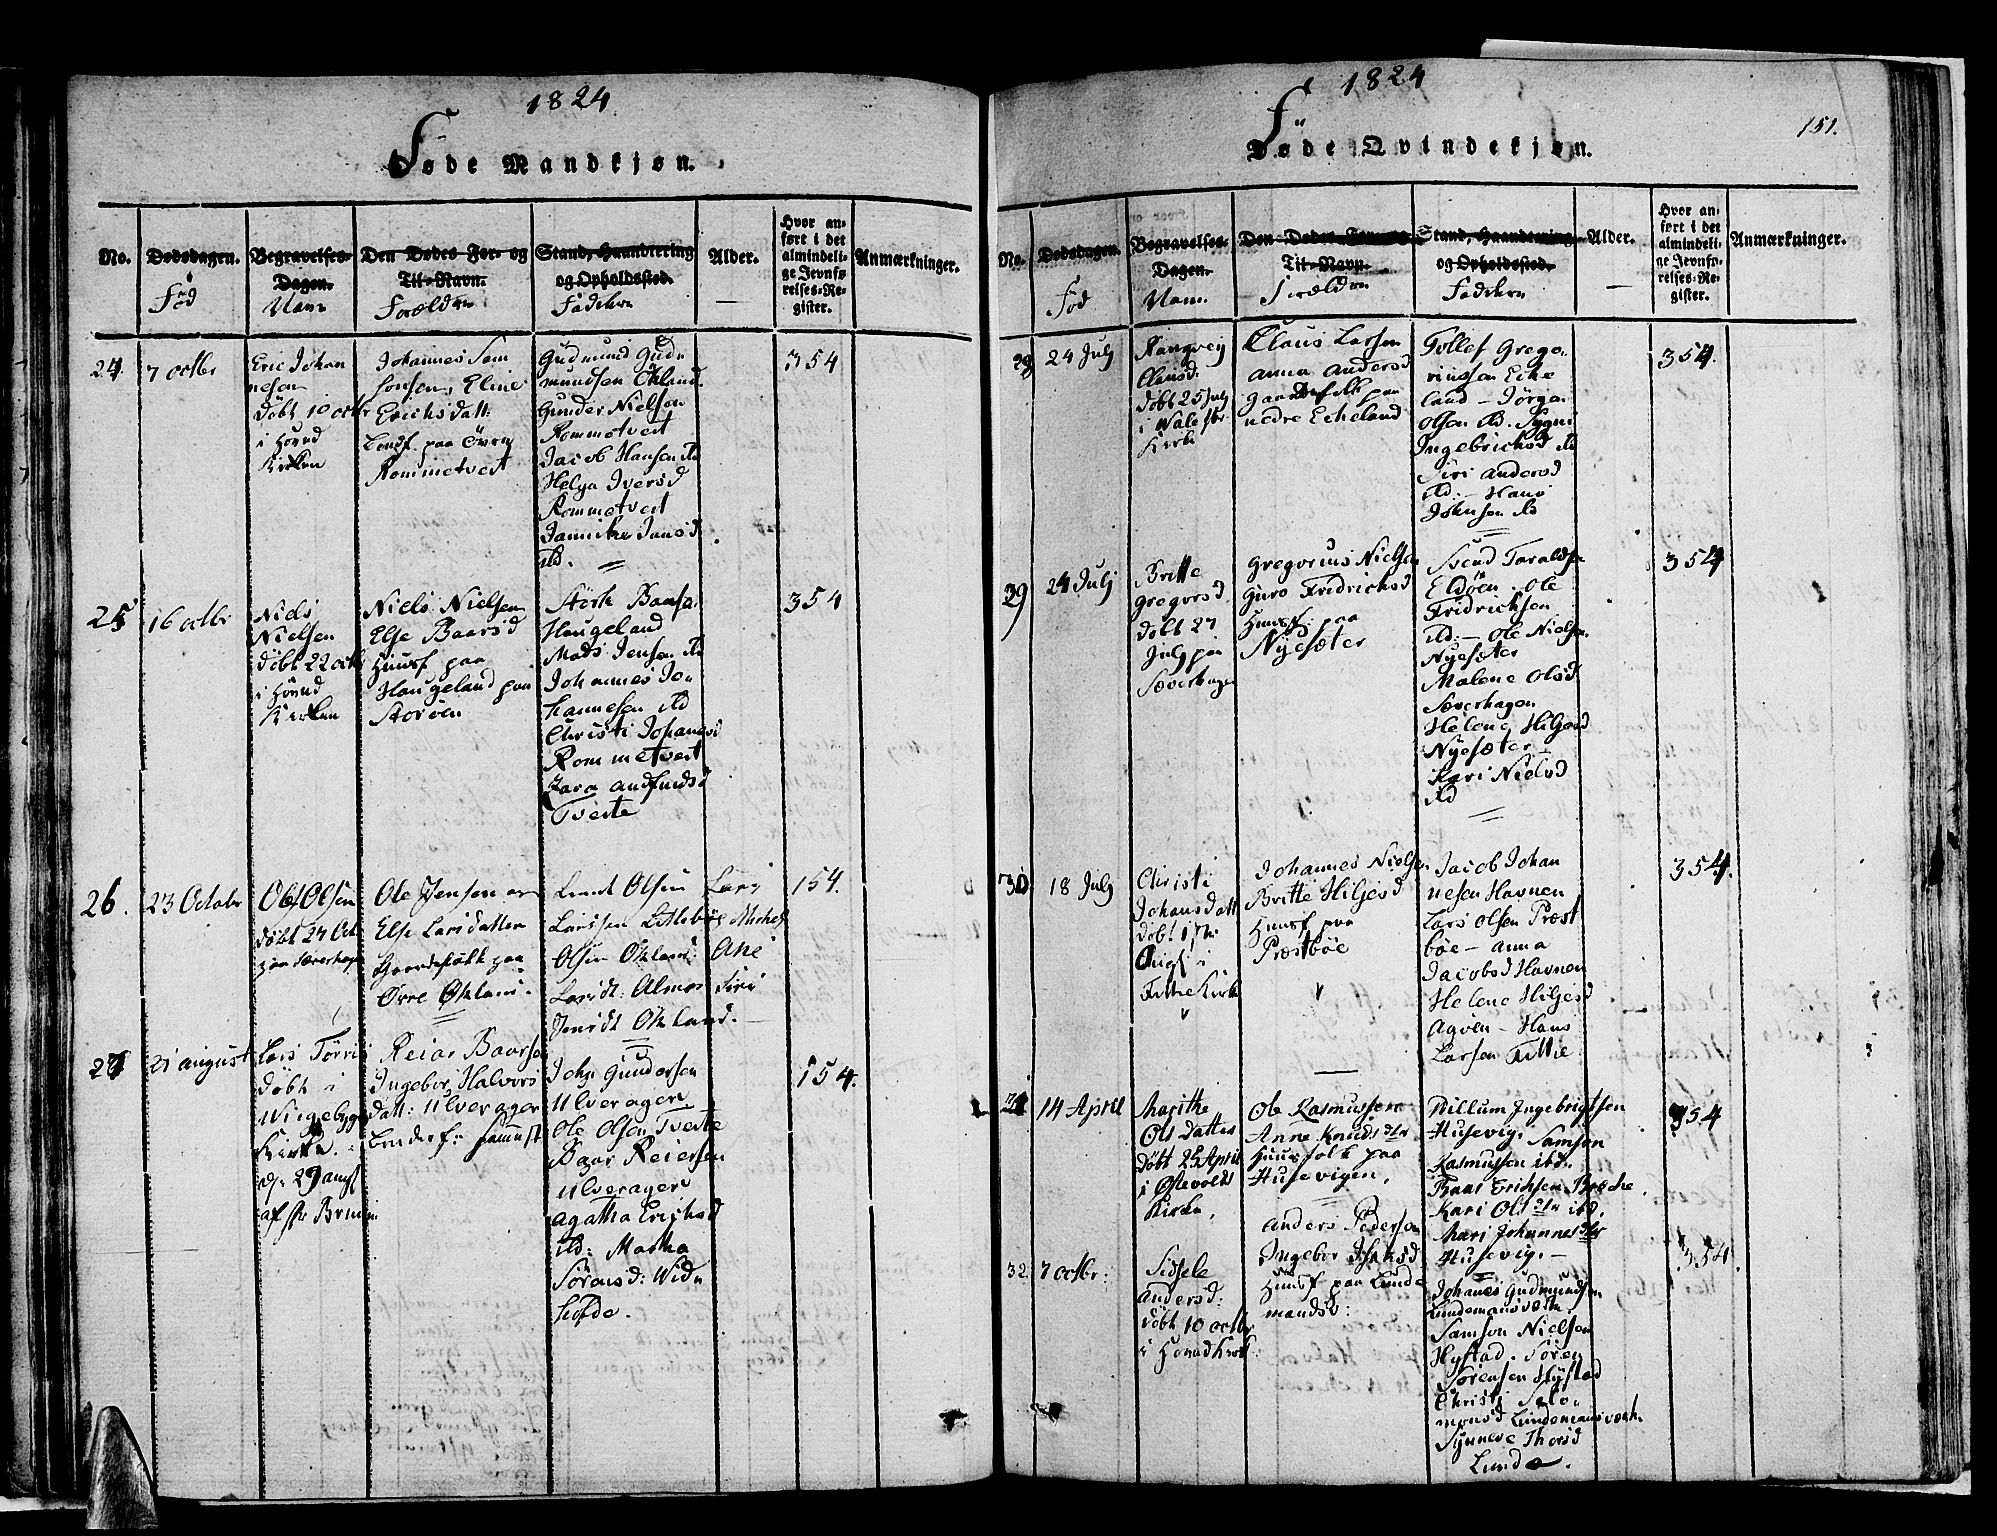 1824
Føde Mandkjøn.
No.
Dødsdagen.
Fød
Begravelses-
Dagen.
Navn
Den Dødes For- og
Til-Navn.
Forældre
Stand, Haandtering
og Opholdssted.
Faddere
Alder.
Hvor an-
ført i det
almindeli-
ge Jevnfø-
relses-Re-
gister.
Anmærkninger.
24
7 octbr
Eric Johan
nesen
døbt 10 octbr
i Hound
Kirken
Johannes Sam
sonsen, Eline
Erichsdatt:
paa Øvre
Rommetvert
Gudmund Gud
mundsen Økland
Gunder Nielsen
Rommetvert
Jacob Hansen ibd
Helga Iversd
Rommetvert
Jannicke Jansd
ibd.
354
25
16 octbr
Niels
Nielsen
døbt 22 octb
i Hound
Kirken
Niels Nielsen
Else Baarsd
Huusf paa
Haugeland paa
Storøen
Störk Baars.
Haugeland
Mads Jensen ibd
Johannes Jo
hannesen ibd
Christi Johansd
Rommetvert
Zara andfindsd
Tverte
354
26.
23 Octobr
Ole Olsen
døbt 24 Oct
paa Særerhagn
Ole Jensen og
Else Larsdatter
Gaardsfolk paa
Øvre Økland.
Knut Olsen Lars
Larssen Litlebøe Michel
Olsen Økland: Ane
Larsdt: Almos Siri
Jensdt Økland.
154.
27
21 august
Lars Torris
døbt i
Wigebygd
Kirke.
d. 29 augst
af Hr Bruun
Reiar Baarsen
Ingebor Halvors
datt: Ulverager
John Gundersen
Ulverager
Ole Olsen Tverte
Baar Reiersen
Ulverager
agatha Erichsd
ibd: Martha
Sörensd: Wid
holde.
154.
1824
151.
Føde Qvindekjøn.
No.
Dødsdagen.
Fød
Begravelses-
Dagen.
Navn.
Den Dødes For- og
Til-Navn.
Forældre
Stand, Haandtering
og Opholdssted.
Faddere
Alder.
Hvor an-
ført i det
almindeli-
ge Jevnfø-
relses-Re-
gister.
Anmærkninger.
28
24 July
Rangveig
Clausd:
døbt 25 July
i
Kirke
Claus Larsen
anna andersd
Gaardsfolk paa
nedre Eckeland
Tollef Grego
riussen Ecke
land - Jørgen
Olsen ibd. Sygni
Ingebricksd ibd
Siri andersd
ibd. - Hans
Johnsen ibd
354.
29
24 July
Britte
Gregorsd
døbt 27
July paa
Sæverhagen
Gregorius Nielsen
Guro Fridricksd
Huusf: paa
Nyesæter
Svend Taraldse
Eldøen. Ole
Fridricksen
ibd: - Ole Nielsen
Nyesæter
Malene Olsd
Sæverhagen
Helene Hiljesd
Nyesæter
Kari Nielsd
ibd
354
30
18 July
Christi
Johansdatt
døbt 1ste
Augst i
Fittie Kirke
Johannes Nielsen
Britte Hiljesd
Huusf paa
Præstbøe
Jacob Johan
nesen Havnen
Lars Olsen Præst
bøe - anna
Jacobsd Havnen
Helene Hiljesd
Agøen - Hans
Larsen Fittie
354.
31
14 April
Marithe
Ols datter
Døbt 25 April
i Østevolds
Kirke.
Ole Rasmussen
Anne Knudsdtr
Huusfolk paa
Husevigen.
Villum Ingebrigtsen
Husevig. Samsen
Rasmussen ibd.
Baar Erichsen Brække.
Kari Olsdtr ibd.
Mari Johannesdtr
Husevig. -
354
32
7 octbr:
Sidsele
andersd:
døbt 10 octbr
i Hound Kirk:
Anders Pedersen
Ingebor Isaksd
Huusf paa Lunde
mandsv:
Johanes Gudmundsen
Lundemansværk
Samson Nielsen
Hystad. Sören
Sörensen Hystad
Christi Salo
monsd Lundemansværk.
Synneve Thorsd
Lunde.
354.